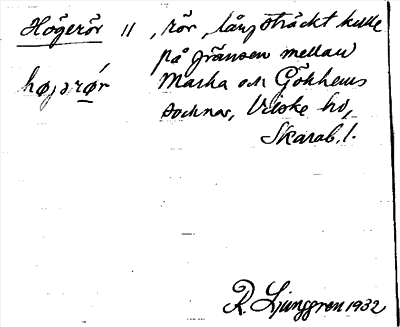 Högerör 11 , rör, långsträckt kulle
på gränsen mellan
høʒərǿr Marka och Gökhems
socknar, Vilske hd,
Skarab. l.
R. Ljunggren 1932